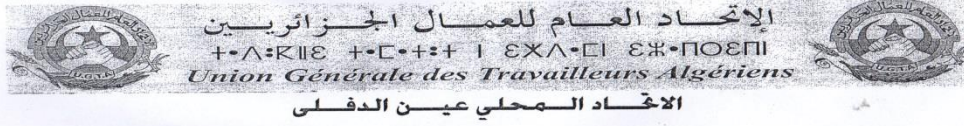 الإتحاد العام للعمال الجزائريين
ⵜⴰⴷⵓⴽⵍⵉ ⵜⴰⵎⴰⵜⵓⵜ ⵏ ⵉⵅⴷⴰⵎⵏ ⵉⵣⴰⵏⵔⵉⵏⵏ
Union Générale des Travailleurs Algériens
الاتحاد المحلي عين الدفلى
U.G.T.A
U.G.T.A